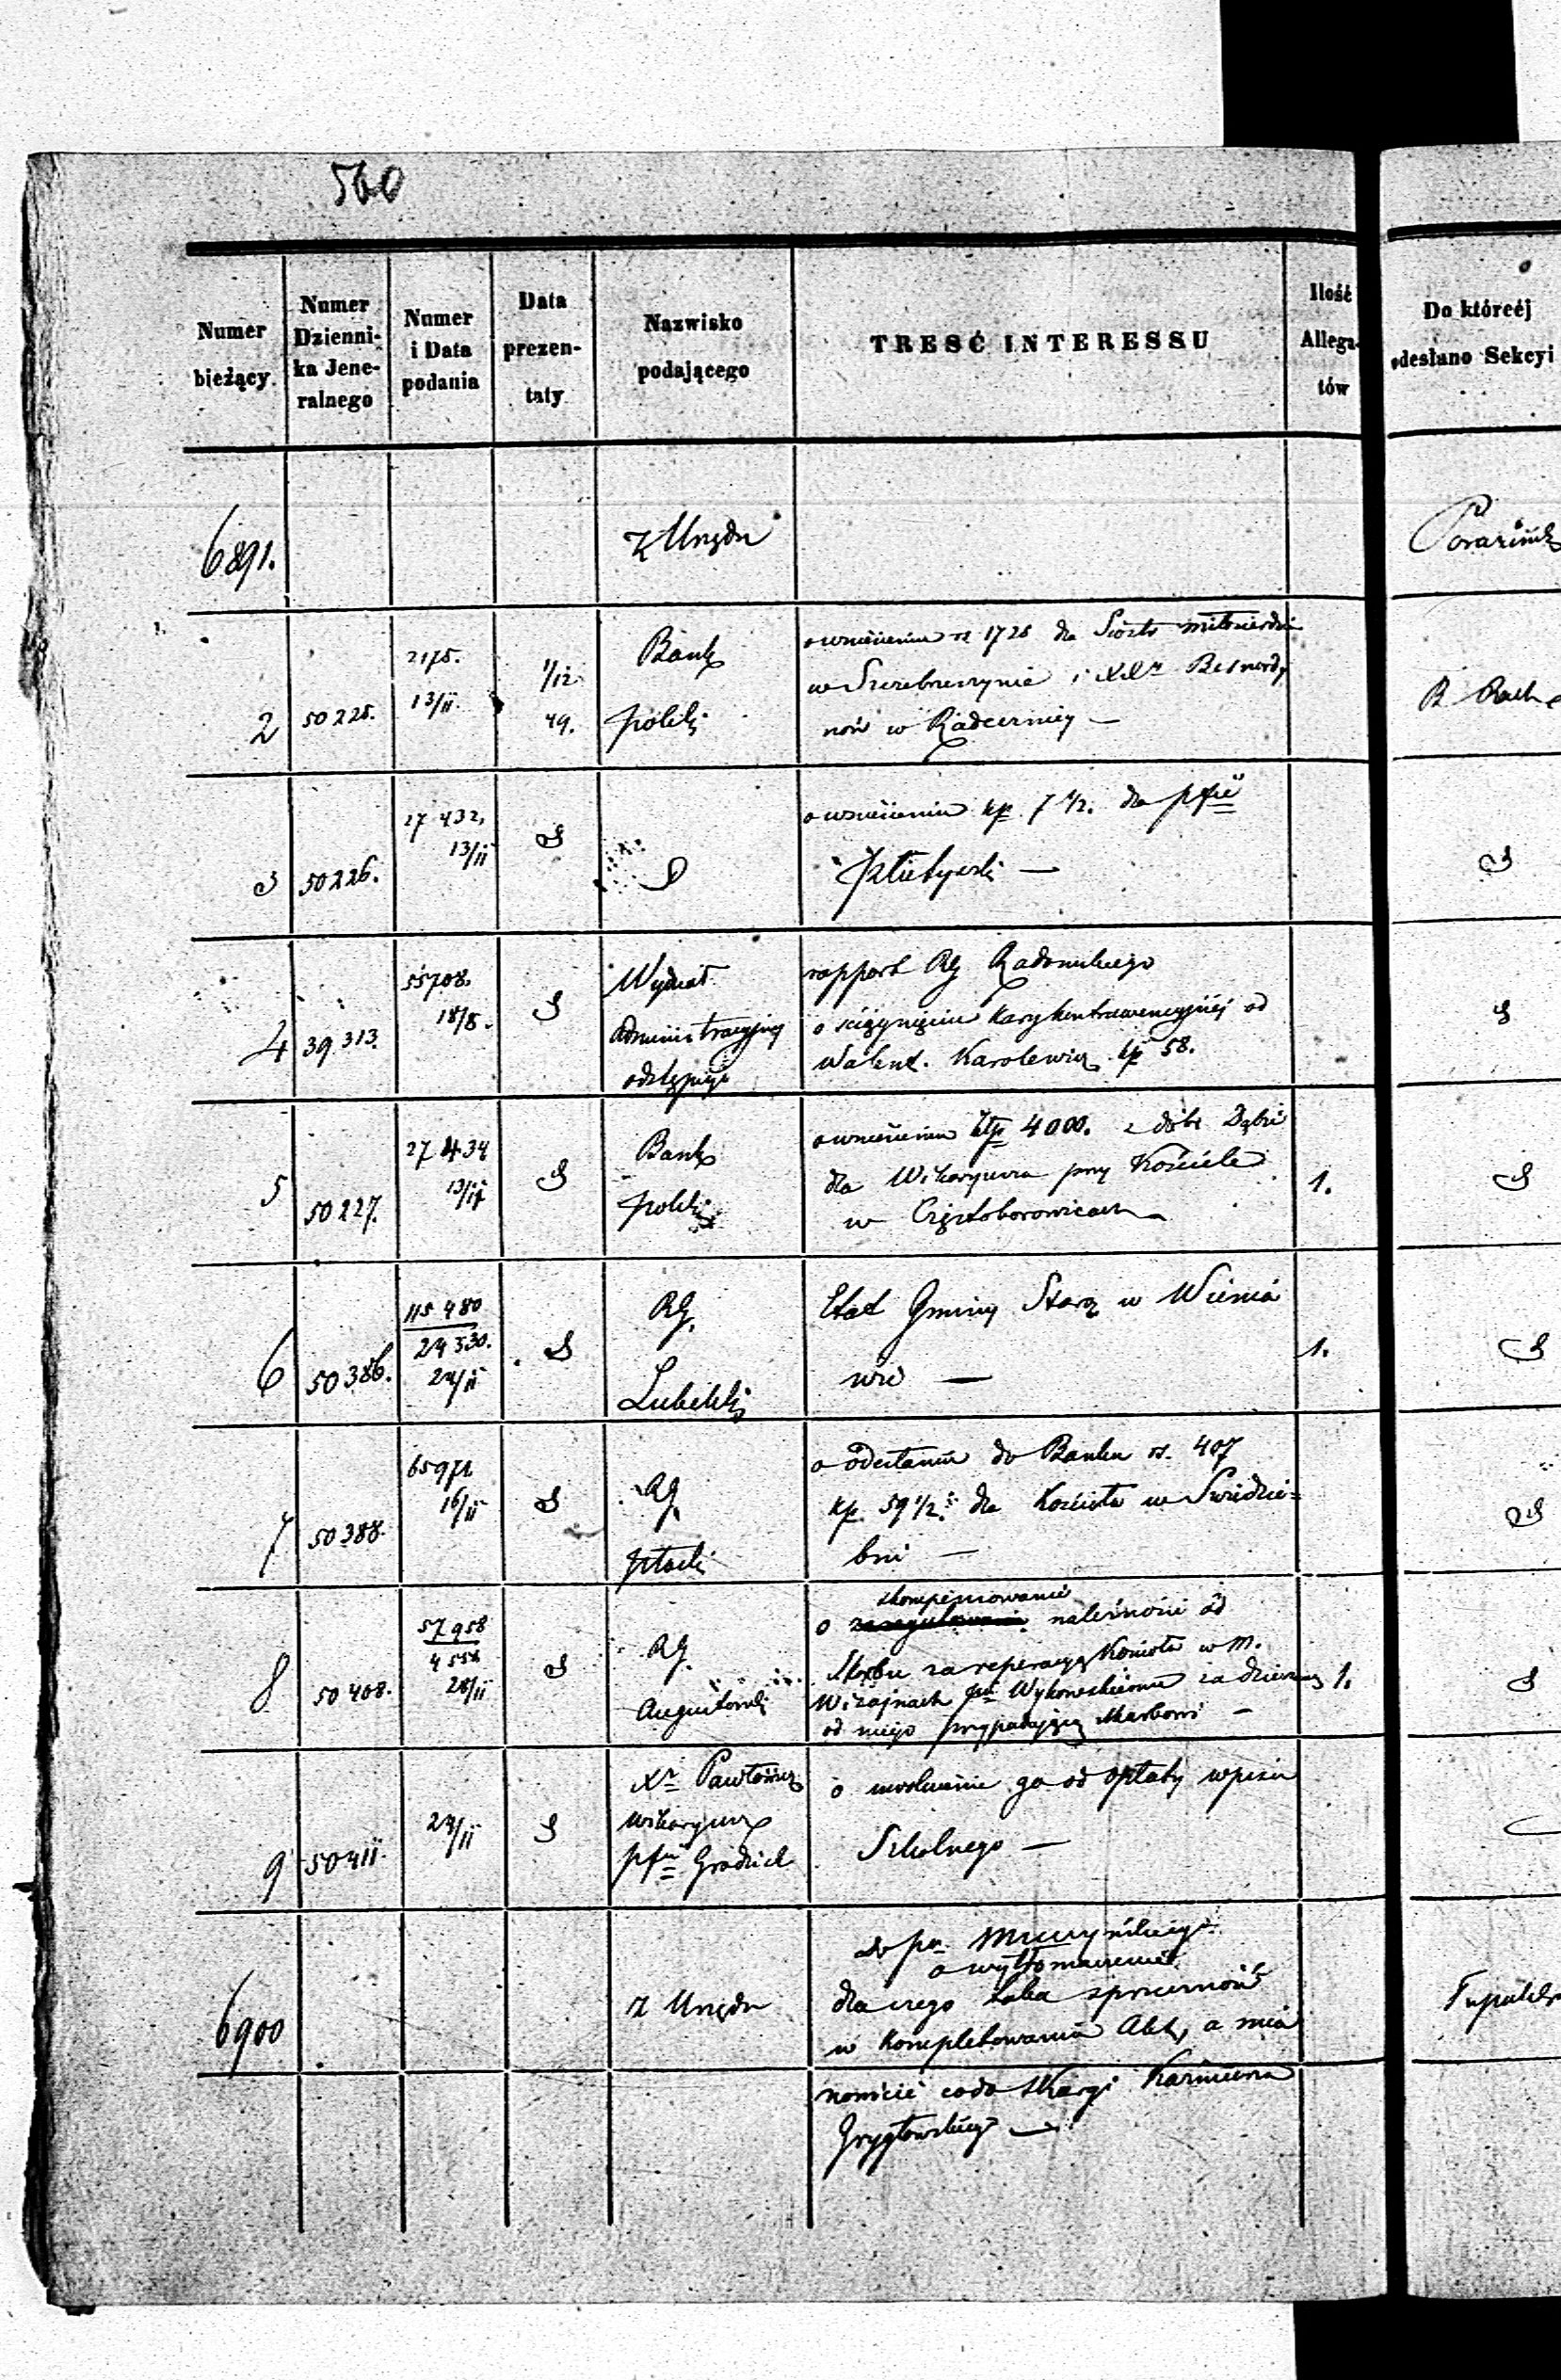 560
Numer bieżący
Numer Dzienni- ka Jene- ralnego
Numer i Data podania
Data prezen- taty
Nazwisko podającego
TRESĆ INTERESSU
Ilość Allega- tów
Do któreéj odesłano Sekcyi
6891.
z Urzędu
2
50225.
2175.
13/11.
1/12.
49.
Bank
polski
o wniesieniu rs 1725 dla Siostr miłosierdzia
w Szczebrzeszynie i XXr Bernardy
nów w Radecznicy —
3
50226.
27 432,
13/11
o wniesieniu kp. 7 1/2. dla pfii
4
39 313.
55708.
18/8.
Wydział
administracyjny
odstępuje
rapport RG Radomskiego
o ściągnięciu kary kontrawencyjnéj od
Walent. Karolewicz kp 58.
5
50227.
27 434
13/11
Bank
polski
o wniesieniu złp 4000. z dóbr
dla Wikaryusza przy Kościele
w Częstoborowicach
1.
6
50386.
115 480
24 330.
24/11
RG.
Lubelski
Etat Gminy Starz w Wienia
wie —
1.
7
50388.
65971.
16/11
RG.
płocki
o odesłaniu do Banku rs. 407
kp. 59 1/2. dla Kościoła w Swiedzie=
bni —
8
50408.
57 958
28/11
RG.
Augustowski
skompensowanie
o należności od
Skarbu za reperacyą Kościoła w m.
Wiżajnach Wykowskiemu za dzierżawę
od niego przypadającą skarbowi —
1.
9
50411.
24/11
Xr Pawłowicz
wikaryusz
pfii Grodzisk
o uwolnienie go od opłaty wpisu
Szkolnego —
6900
z Urzędu
do pa
o wytłomaczenie
dla czego taka sprzeczność
w kompletowaniu Akt, a mia
nowicie co do skargi Kazimierza
Grygłowskiego —